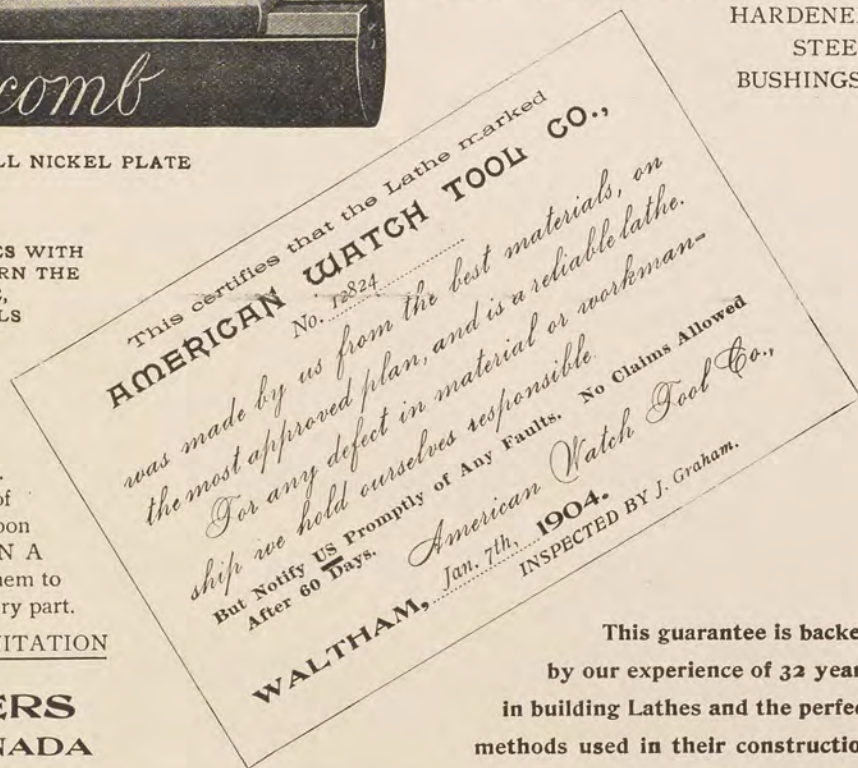 comb
NICKEL PLATE
WITH
THE
of
N A
to
part.
HARDENE
STEE
BUSHINGS
This certifies that the Lathe marked
AMERICAN WATCH TOOL CO.,
No. 12824
was made by us from the best materials, on
the most approved plan, and is a reliable lathe.
For any defect in material or workman-
ship we hold ourselves responsible.
But Notify US Promptly of Any Faults. No Claims Allowed
After 60 Days.
American Watch Tool Co.,
WALTHAM, Jan. 7th, 1904.
INSPECTED BY J. Graham.
This guarantee is backe
by our experience of 32 year
in building Lathes and the perfec
methods used in their constructio